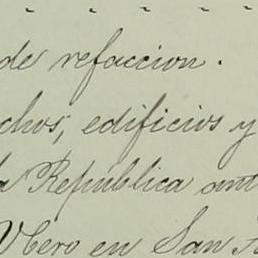 de refaccion.
chos, edificios y
la República ant
Ubero en San